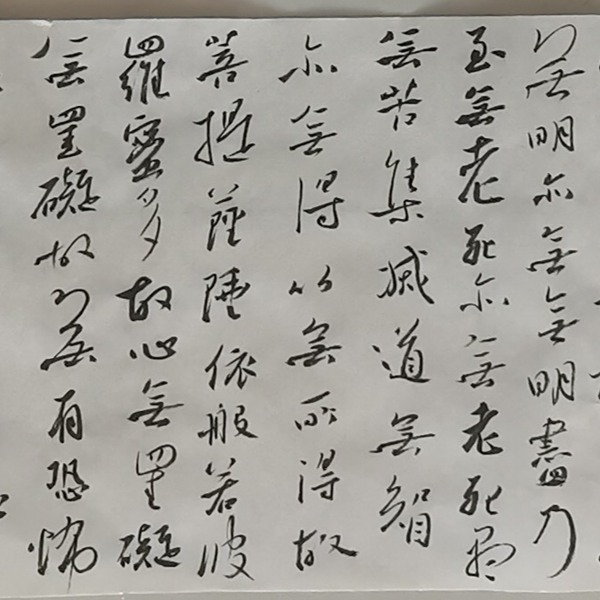 無明亦無無明盡乃
至無老死亦無老死盡
無苦集滅道無智
亦無得以無所得故
菩提薩埵依般若波
羅蜜多故心無罣礙
無罣礙故無有恐怖